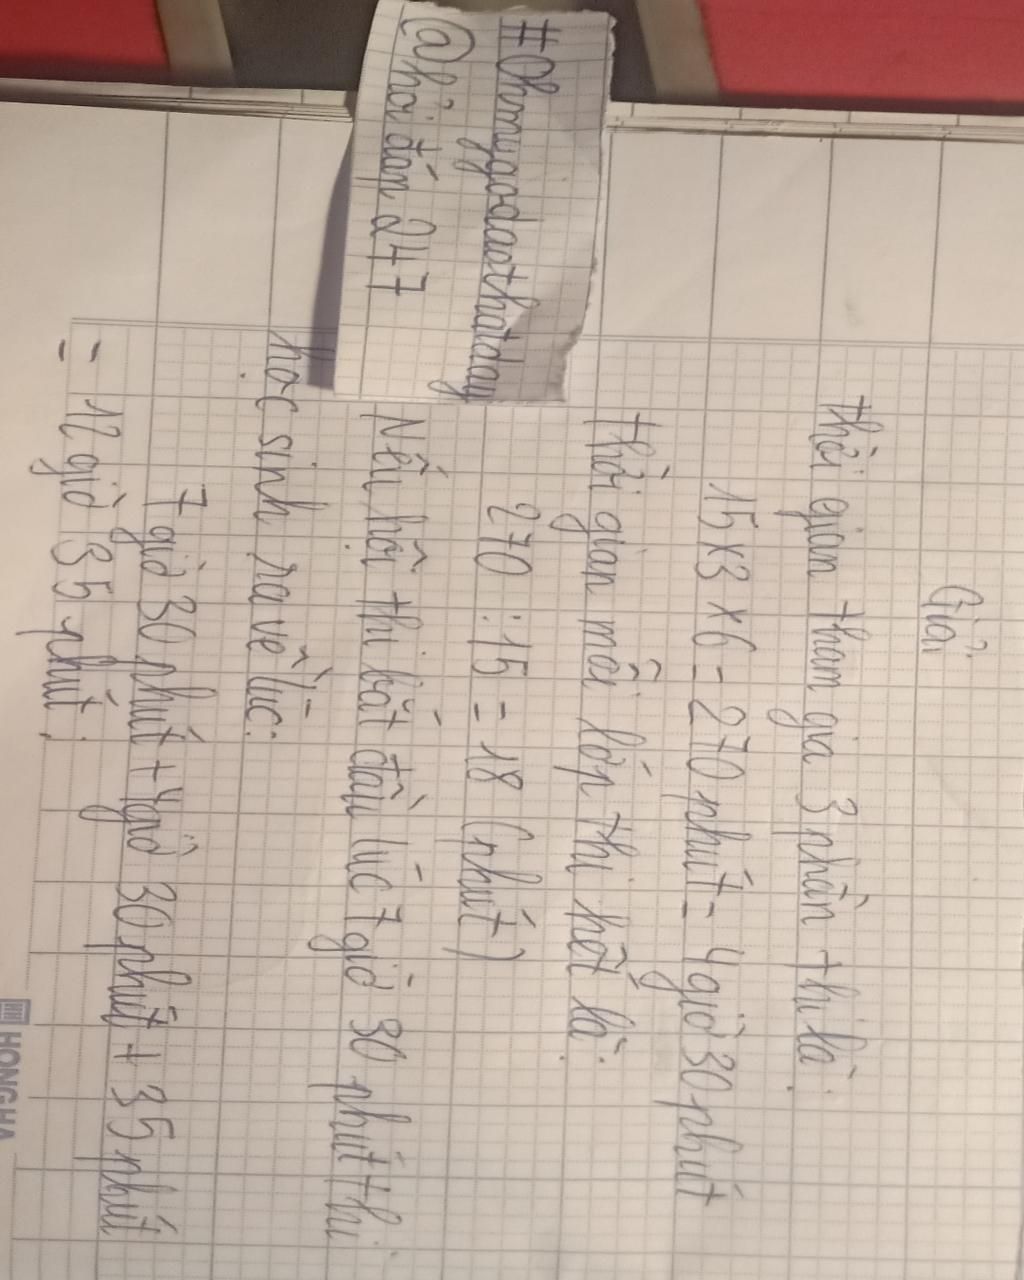 #Ohmygodaothatday
@hỏi đáp 247
Giải
Thời gian tham gia 3 phần thi là:
15 x 3 x 6 = 270 phút = 4 giờ 30 phút
Thời gian mỗi lớp thi hết là:
270 : 15 = 18 (phút)
Nếu hội thi bắt đầu lúc 7 giờ 30 phút thì
học sinh ra về lúc:
7 giờ 30 phút + 4 giờ 30 phút + 35 phút
= 12 giờ 35 phút.
HONGHA